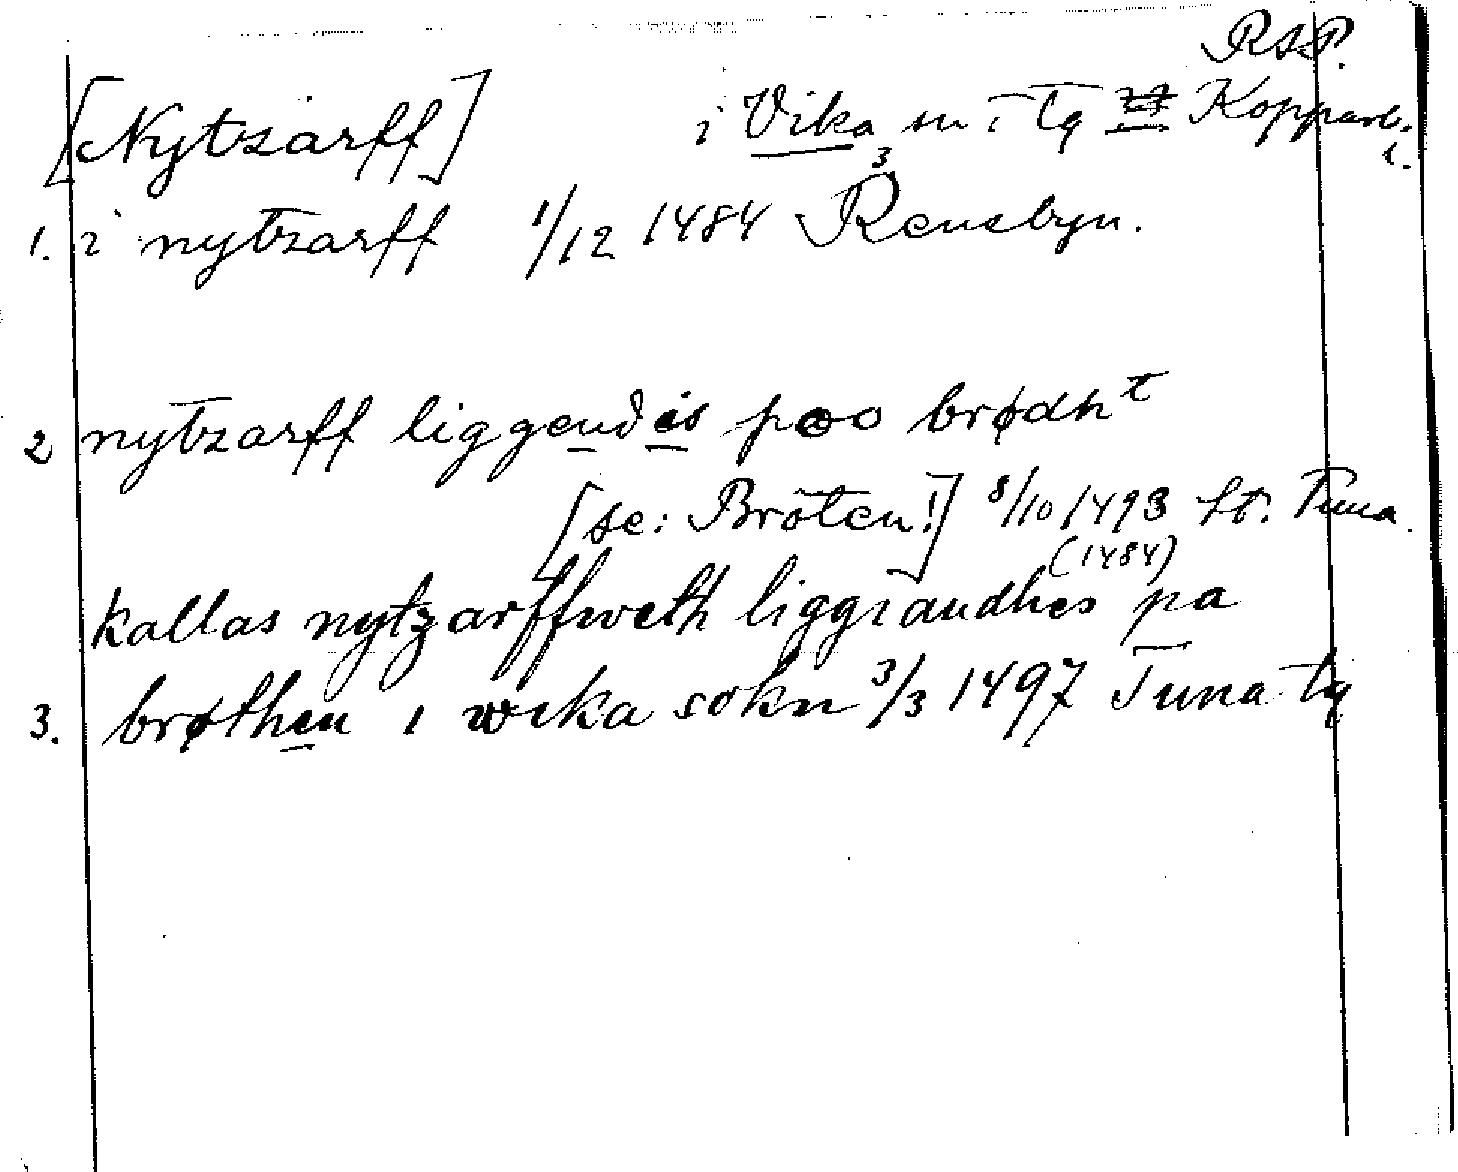 RAP.
[Nytzarff] i Vika sn i Tq Kopparb. l.
3
1. i nytzarff 1/12 1484 Rensbyn.
2 nytzarff liggendis poo brødht
[sc: Bröten!] 8/10 1493 St. Tuna.
(1484)
kallas nytzarffweth liggiandhes pa
3. brøthen i wika sokn 3/3 1497 Tuna tg